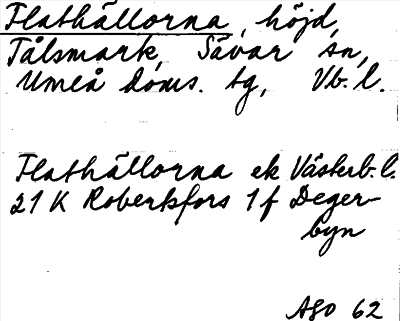 Flathällorna, höjd,
Tålsmark, Sävar sn,
Umeå doms. tg, Vb. l.
Flathällorna ek Västerb. l.
21 K Robertsfors 1 f Deger-
byn
ASO 62